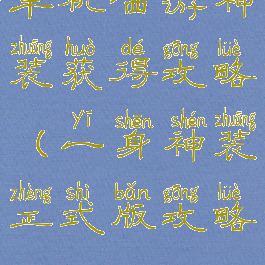 单机 游神
zhuāng huò dé gōng lüè
装获得攻略
yī shēn shén zhuāng
(一身神装
zhèng shì bǎn gōng lüè
正式版攻略